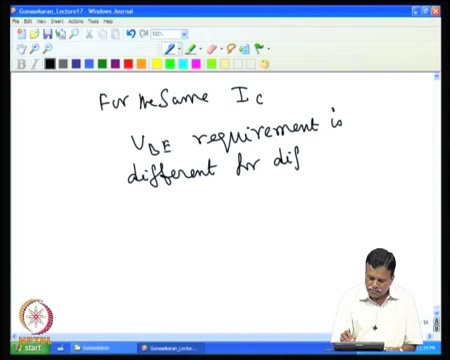 Gunasekaran_Lecture17 - Windows Journal
File Edit View Insert Actions Tools Help
100%
B I
For the Same I C
VBE requirement is
different for dif
start Gunasekaran Gunasekaran_lectur...
NPTEL